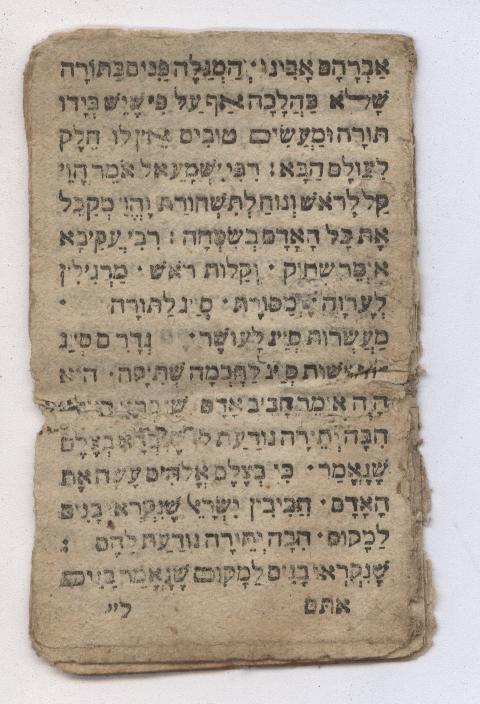 אַבְרָהָם אָבִינוּ · הַמְגַלֶּה פָּנִים בַּתּוֹרָה
שֶׁלֹּא כַּהֲלָכָה אַף עַל פִּי שֶׁיֵּשׁ בְּיָדוֹ
תּוֹרָה וּמַעֲשִׂים טוֹבִים אֵין לוֹ חֵלֶק
לָעוֹלָם הַבָּא : רַבִּי יִשְׁמָעֵאל אוֹמֵר הֱוֵי
קַל לָרֹאשׁ וְנוֹחַ לַתִּשְׁחוֹרֶת וֶהֱוֵי מְקַבֵּל
אֶת כָּל הָאָדָם בְּשִׂמְחָה : רַבִּי עֲקִיבָא
אוֹמֵר שְׂחוֹק · וְקַלּוּת רֹאשׁ · מַרְגִּילִין
לָעֶרְוָה · מַסּוֹרֶת · סְיָג לַתּוֹרָה ·
מַעְשְׂרוֹת סְיָג לָעוֹשֶׁר · נְדָרִים סְיָג
סְיָג לַחָכְמָה שְׁתִיקָה · הוּא
הָיָה אוֹמֵר חָבִיב אָדָם
חִבָּה יְתֵירָה נוֹדַעַת לוֹ בְּצֶלֶם
שֶׁנֶּאֱמַר · כִּי בְּצֶלֶם אֱלֹהִים עָשָׂה אֶת
הָאָדָם · חֲבִיבִין יִשְׂרָאֵל שֶׁנִּקְרְאוּ בָנִים
לַמָּקוֹם · חִבָּה יְתֵירָה נוֹדַעַת לָהֶם :
שֶׁנִּקְרְאוּ בָנִים לַמָּקוֹם שֶׁנֶּאֱמַר בָּנִים
אתם לי״י